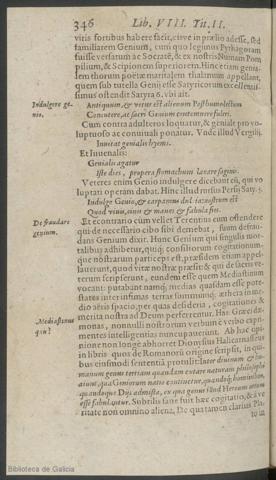 346 Lib. VIII. Tit. II.
vitis fortibus habere facit, cive in prælio adesse, sed
familiarem Genium, cum quo legimus Pythagoram
fuisse versatum ac Socraté, & ex nostris Numam Pom
pilium, & Scipionem superiorem. Hinc etiam geniá-
lem thorum poëtæ maritalem thalamum appellant,
quem sub tutella Genij esse Satyricorum excellentis-
simus ostendit Satyra 6. vbi ait.
Indulgere ge-
nio.
Antiquum, & vetus est alienum Posthume lectum
Concutere, ac sacri Genium contemnere fulcri.
Cum contra adulteros loquatur, & geniale pro vo-
luptuoso ac connuiuali ponatur. Vnde illud Vergilij
Inuitat genialis hyems.
Et Iuuenalis:
Genialis agatur
Iste dies, propera stomachum laxare sagino.
Veteres enim Genio indulgere dicebant eū, qui vo
luptati operam dabat. Hinc illud rursus Persij Saty. 5.
Indulge Genio, & carpamus dulcia: nostrum est
Quod viuis, cinis & manes & fabula fies.
De fraudare
genium.
Et econtrario cum vellet Terentius eum ostendere
qui de necessario cibo sibi demebat, suum defrau-
dans Genium dixit. Hunc Genium qui singulis mor-
talibus adhibetur, quiq; consiliorum cogitationum-
que nostrarum particeps est, præsidem etiam appel-
lauerunt, quod vitæ nostræ præsit: & qui de sacris ve-
terum scripserunt, eundem esse quem Mediastinum
Mediastinus
quis?
vocant: putabant namq; medias quasdam esse pote-
states inter infimas terræ summumq; æthera in me-
dio aëris spacio, per quas desideria, cogitationes &
merita nostra ad Deum perferrentur. Has Græci dæ-
monas, nonnulli nostrorum verbum è verbo expri-
mentes intelligentias nuncupauerunt. Ab hac opi-
nione non longe abhorret Dionysius Halicarnasseus
in libris quos de Romanorū origine scripsit, in qui-
bus eiusmodi sententiā protulit:
esse fabulantur. Subtilis sane fuit hæc cogitatio, & à ve
ritate non omnino aliena. De qua tamen clarius Pla
to in
Biblioteca de Galicia